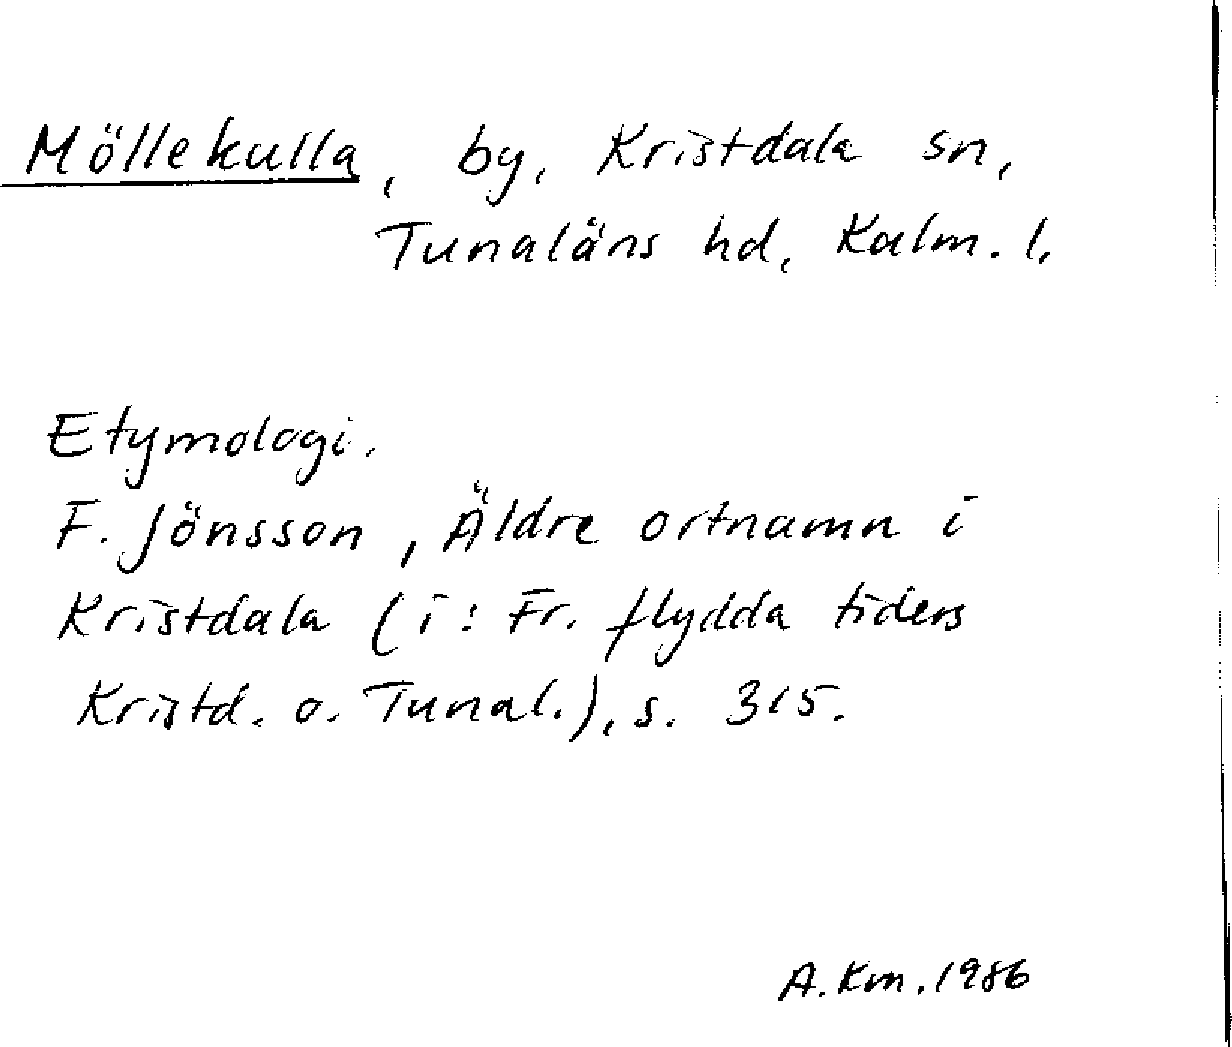 Möllekulla, by, Kristdala sn,
Tunaläns hd, Kalm. l.
Etymologi.
F. Jönsson, Äldre ortnamn i
Kristdala (i: Fr. flydda tiders
Kristd. o. Tunal.), s. 315.
A. Km. 1986